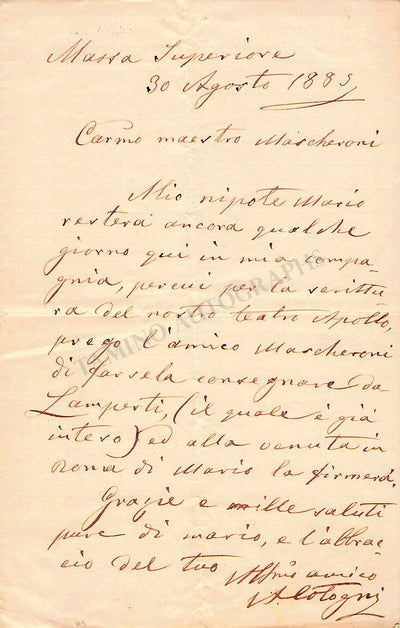 Massa Superiore
30 Agosto 1885
Carmo maestro Mascheroni
Mio nipote Mario
resterà ancora qualche
giorno qui in mia compa-
gnia, percui per la scrittu-
ra del nostro teatro Apollo,
prego l'amico Mascheroni
di farsela consegnare da
Lamperti, (il quale è già
inteso) ed alla venuta in
Roma di Mario la firmerà.
Grazie e mille saluti
pure di Mario, e l'abbrac-
cio del tuo
Affmo amico
A. Cotogni
TAMINO AUTOGRAPHS